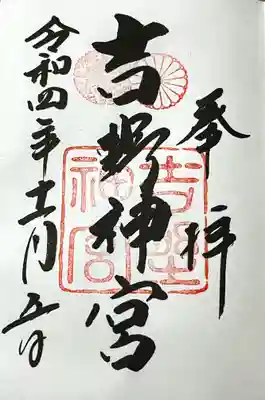 奉拝
吉野神宮
令和四年十二月五日
吉野
神宮